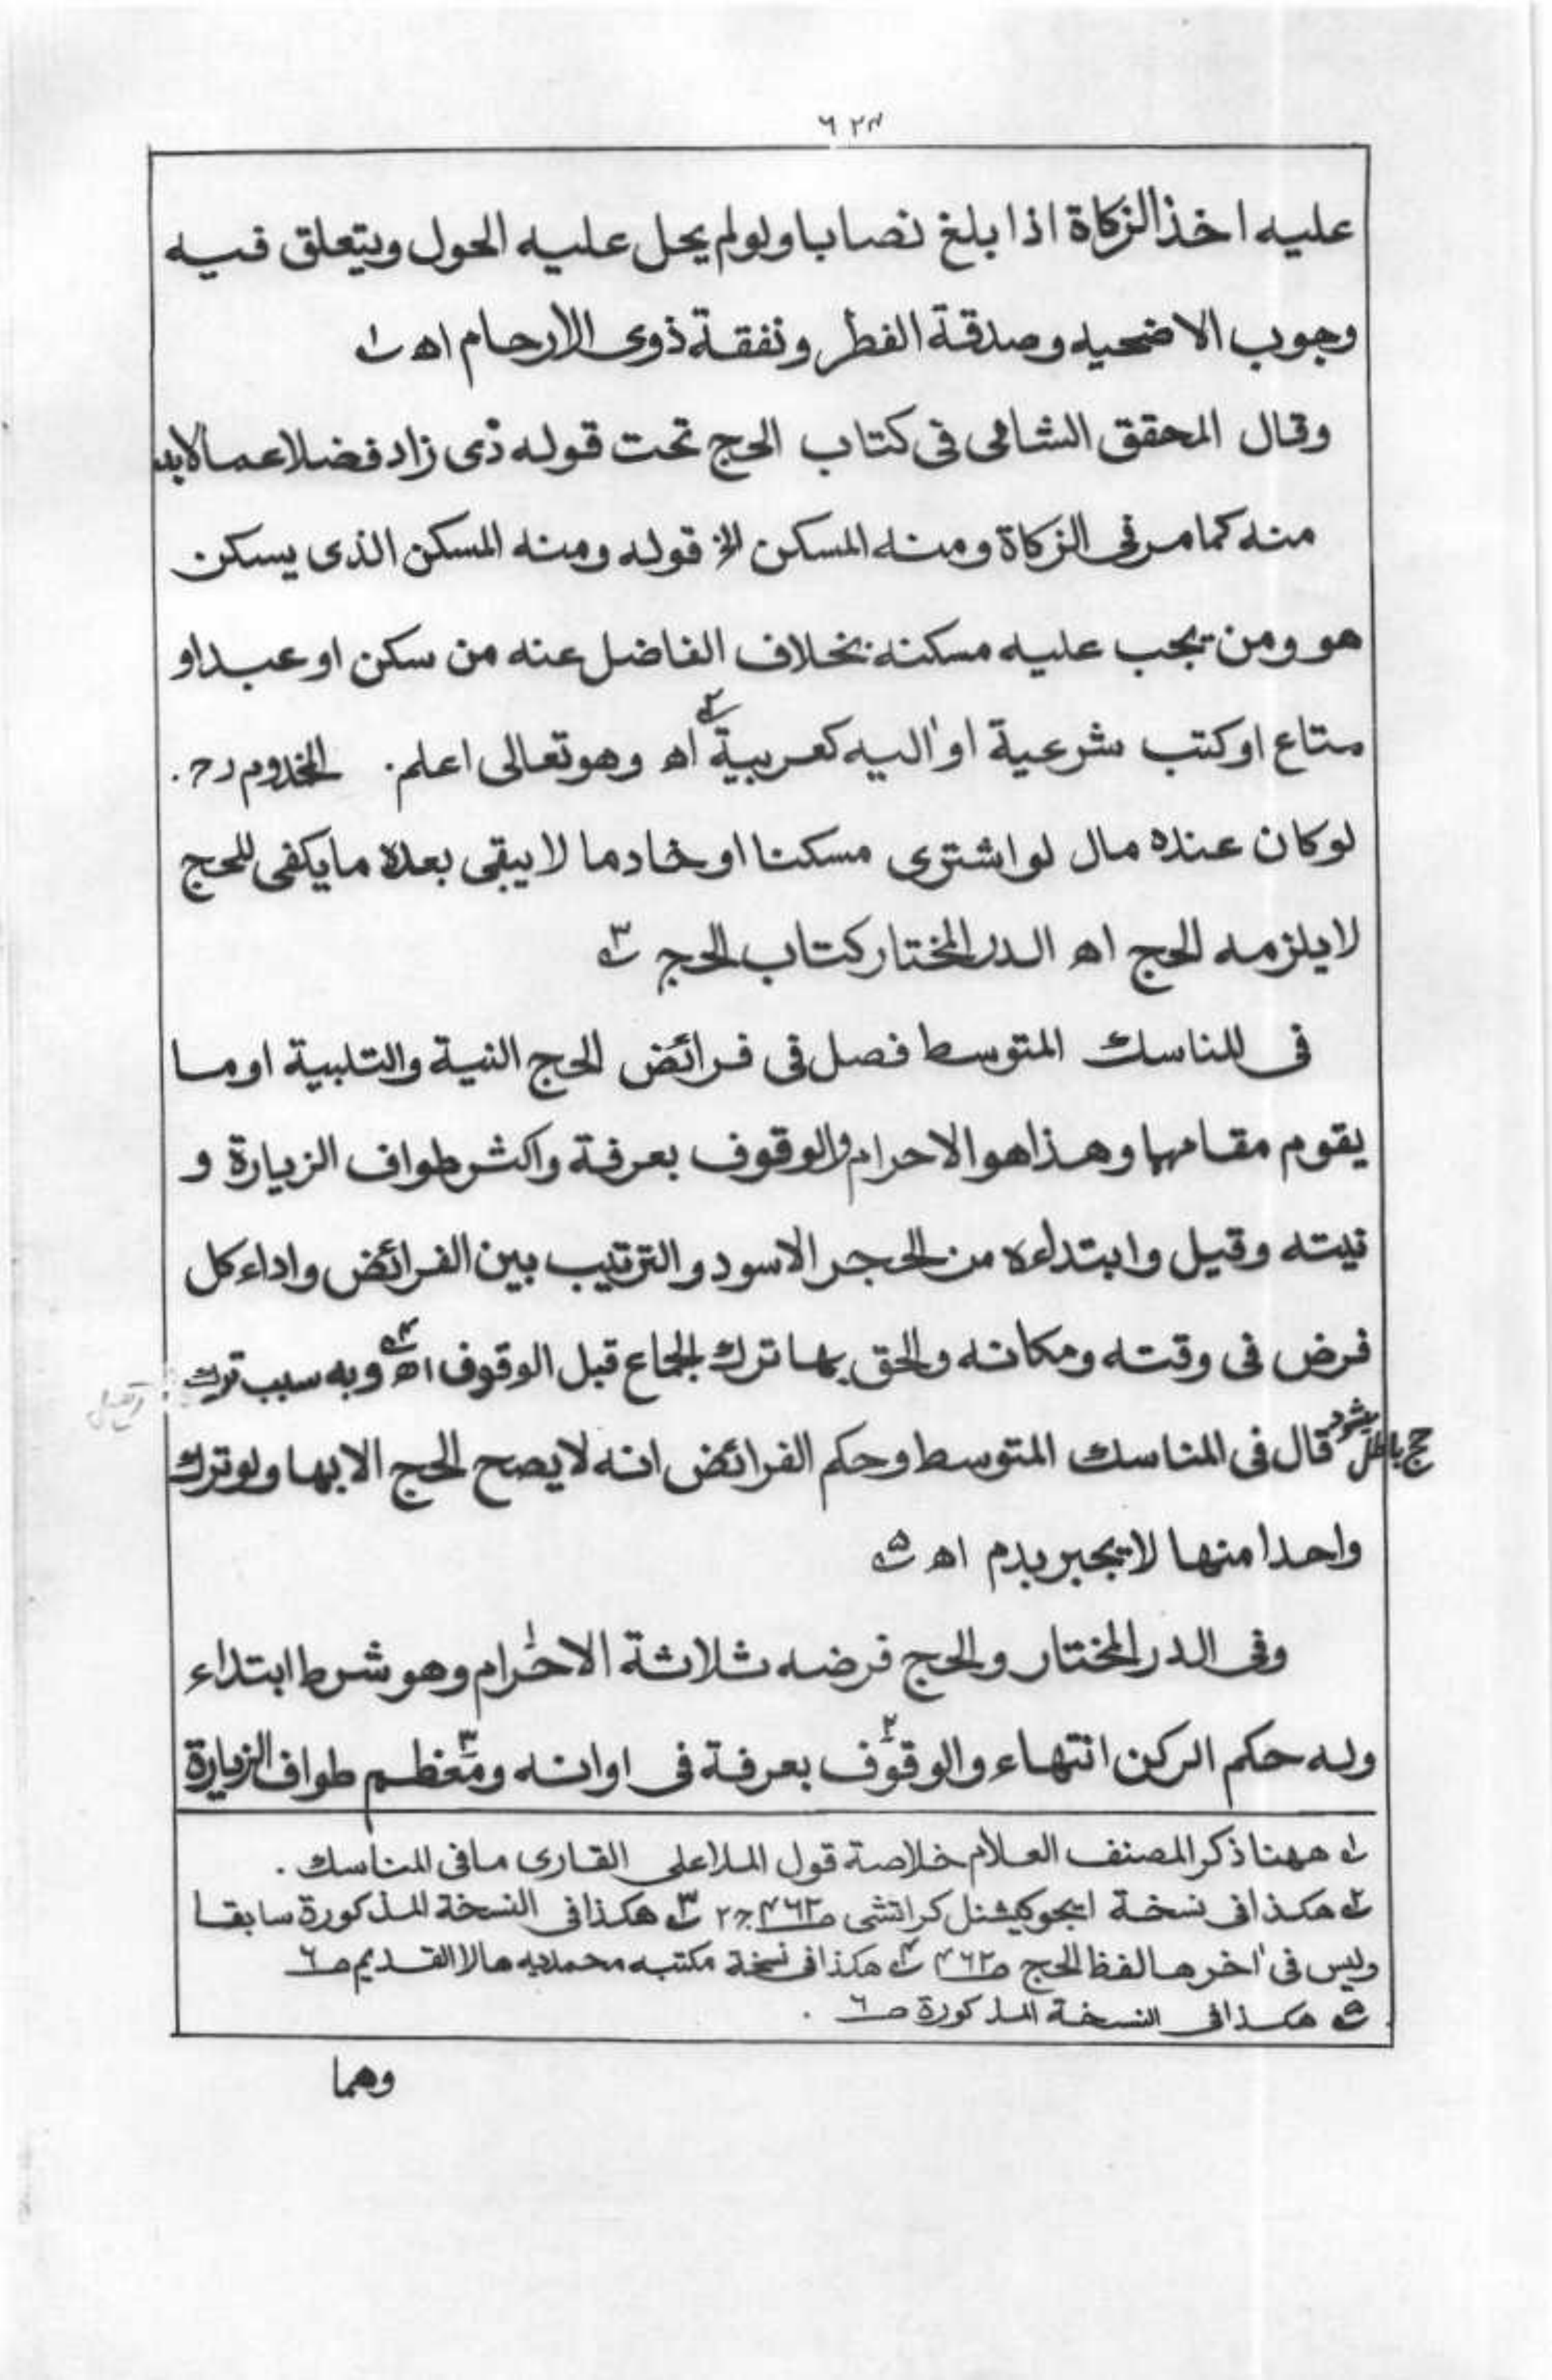 ٦٢٣
عليه اخذ الزكاة اذا بلغ نصابا ولولم يحل عليه الحول ويتعلق فيه
وجوب الاضحيه وصدقة الفطر ونفقة ذوى الارحام اھ ۱
وقال المحقق الشامى فى كتاب الحج تحت قوله ذى زاد فضلا عمالابد
منه كمامر فى الزكاة ومنه المسكن الخ قوله ومنه المسكن الذى يسكن
هو ومن تجب عليه مسكنه بخلاف الفاضل عنه من سكن او عبد او
متاع او كتب شرعية او اٰليه كعربية اھ ۲ وهو تعالى اعلم. المخدوم رح.
لوكان عنده مال لو اشترى مسكنا او خادما لا يبقى بعده ما يكفى للحج
لا يلزمه الحج اھ الدر المختار كتاب الحج ۳
فى المناسك المتوسط فصل فى فرائض الحج النية والتلبية او ما
يقوم مقامها وهذا هو الاحرام والوقوف بعرفة واكثر طواف الزيارة و
نيته وقيل وابتداءه من الحجر الاسود والترتيب بين الفرائض واداء كل
فرض فى وقته ومكانه والحق بها ترك الجماع قبل الوقوف اھ ۴ وبه سبب ترك
حج باطل ميشود قال فى المناسك المتوسط وحكم الفرائض انه لا يصح الحج الا بها ولو ترك
واحدا منها لا يجبر بدم اھ ۵
وفى الدر المختار والحج فرضه ثلاثة الاحرام ۱ وهو شرط ابتداء
وله حكم الركن انتهاء والوقوف ۲ بعرفة فى اوانه ومعظم ۳ طواف الزيارة
۱ ههنا ذكر المصنف العلام خلاصة قول الملا على القارى مافى المناسك.
۲ هكذا فى نسخة ايجوكيشنل كراتشى صـ۴۶۲ ج۲ ۳ هكذا فى النسخة المذكورة سابقا
وليس فى اٰخرها لفظ الحج صـ۴۶۲ ۴ هكذا فى نسخة مكتبه محمديه هالا القديم صـ٦
۵ هكذا فى النسخة المذكورة صـ٦.
وهما